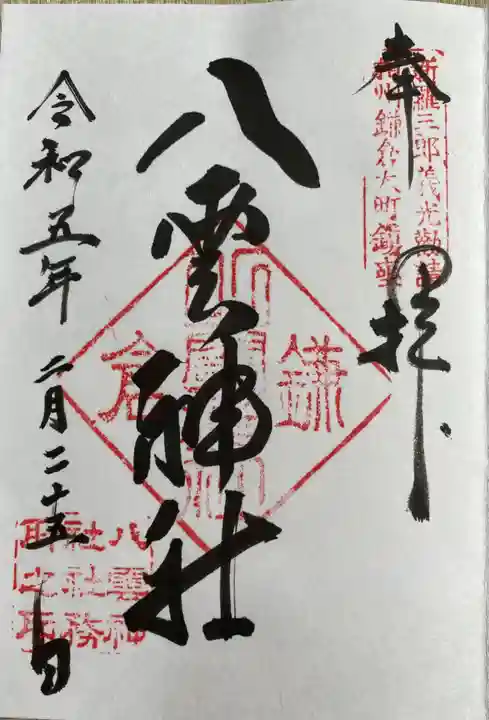 奉拝
新羅三郎義光勧請
相州鎌倉大町鎮座
八雲神社
鎌倉
令和五年二月二十五日
八雲神
社社務
所之印